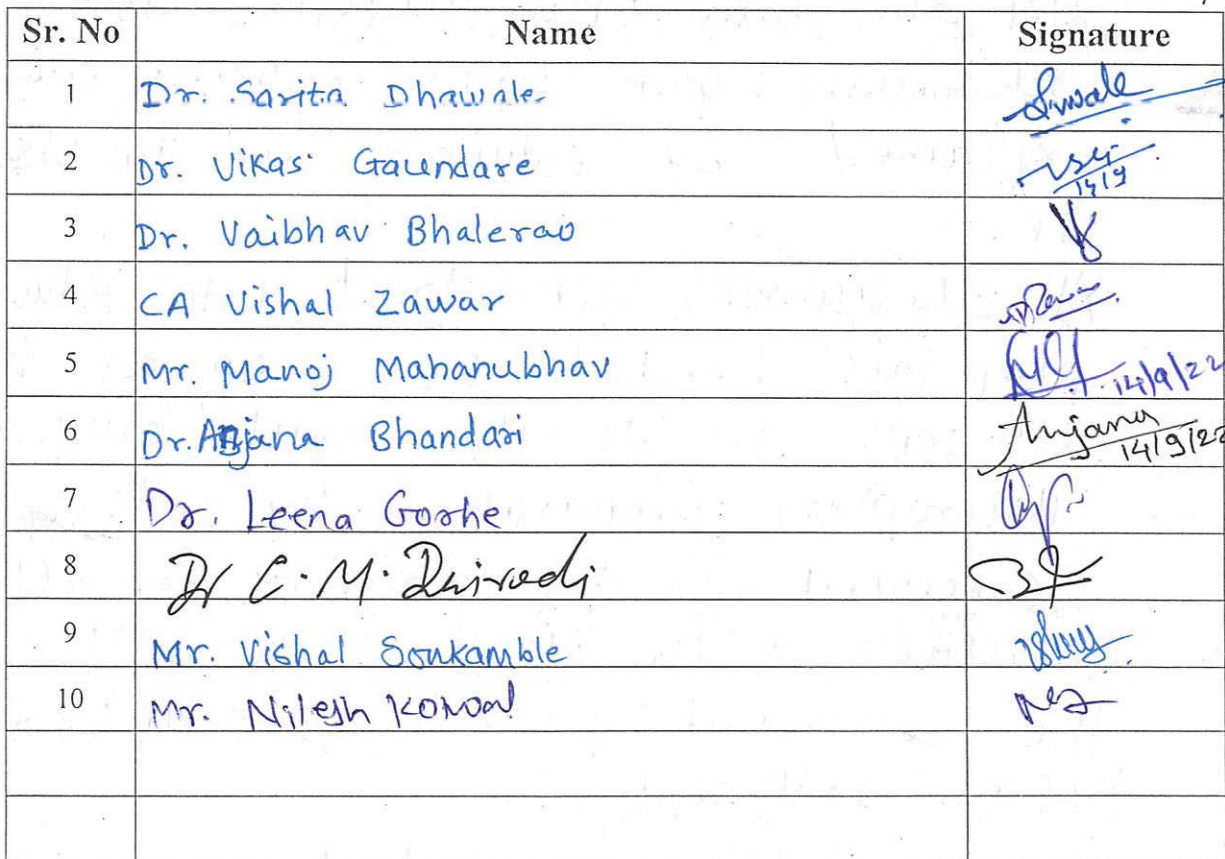 Sr. No Name Signature
1 Dr. Sarita Dhawale
2 Dr. Vikas Gaundare 14/9
3 Dr. Vaibhav Bhalerao
4 CA Vishal Zawar
5 Mr. Manoj Mahanubhav 14/9/22
6 Dr. Anjana Bhandari Anjana 14/9/22
7 Dr. Leena Gorhe
8 Dr C. M. Dwivedi
9 Mr. Vishal Sonkamble
10 Mr. Nilesh